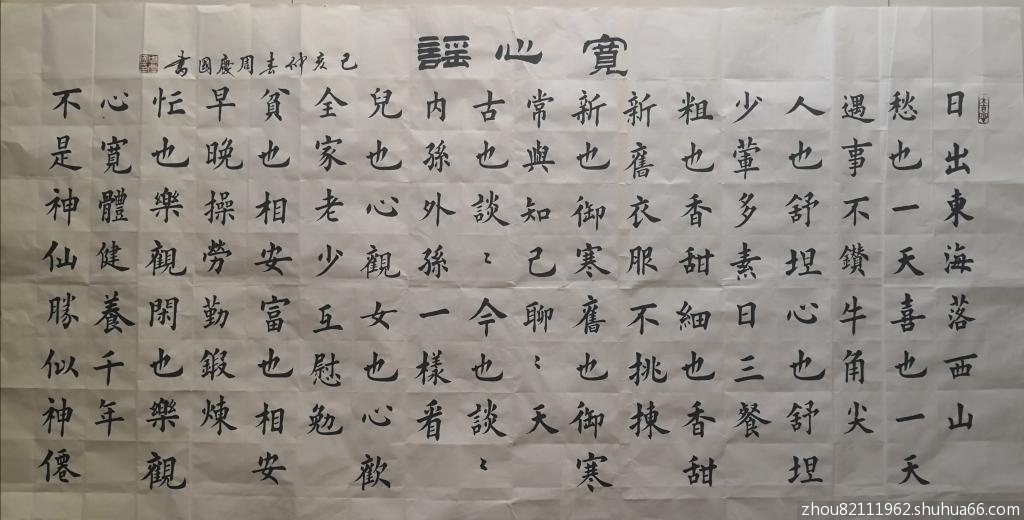 寬心謠
日出東海落西山
愁也一天喜也一天
遇事不鑽牛角尖
人也舒坦心也舒坦
少葷多素日三餐
粗也香甜細也香甜
新舊衣服不挑揀
新也御寒舊也御寒
常與知己聊〻天
古也談〻今也談〻
內孫外孫一樣看
兒也心觀女也心歡
全家老少互慰勉
貧也相安富也相安
早晚操勞勤鍜煉
忙也樂觀閑也樂觀
心寬體健養千年
不是神仙勝似神僊
己亥仲春周慶国書
zhou82111962.shuhua66.com